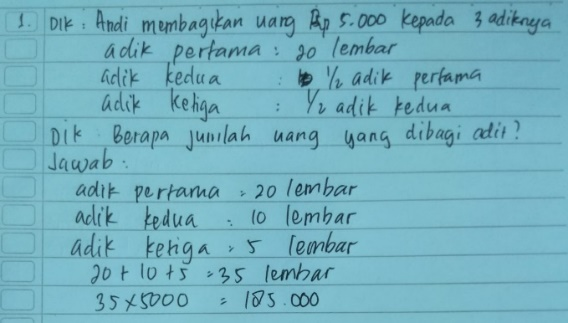 1. Dik : Andi membagikan uang Rp 5.000 kepada 3 adiknya
adik pertama : 20 lembar
adik kedua : 1/2 adik pertama
adik ketiga : 1/2 adik kedua
Dik : Berapa jumlah uang yang dibagi adit?
Jawab :
adik pertama = 20 lembar
adik kedua = 10 lembar
adik ketiga = 5 lembar
20 + 10 + 5 = 35 lembar
35 x 5000 = 185.000